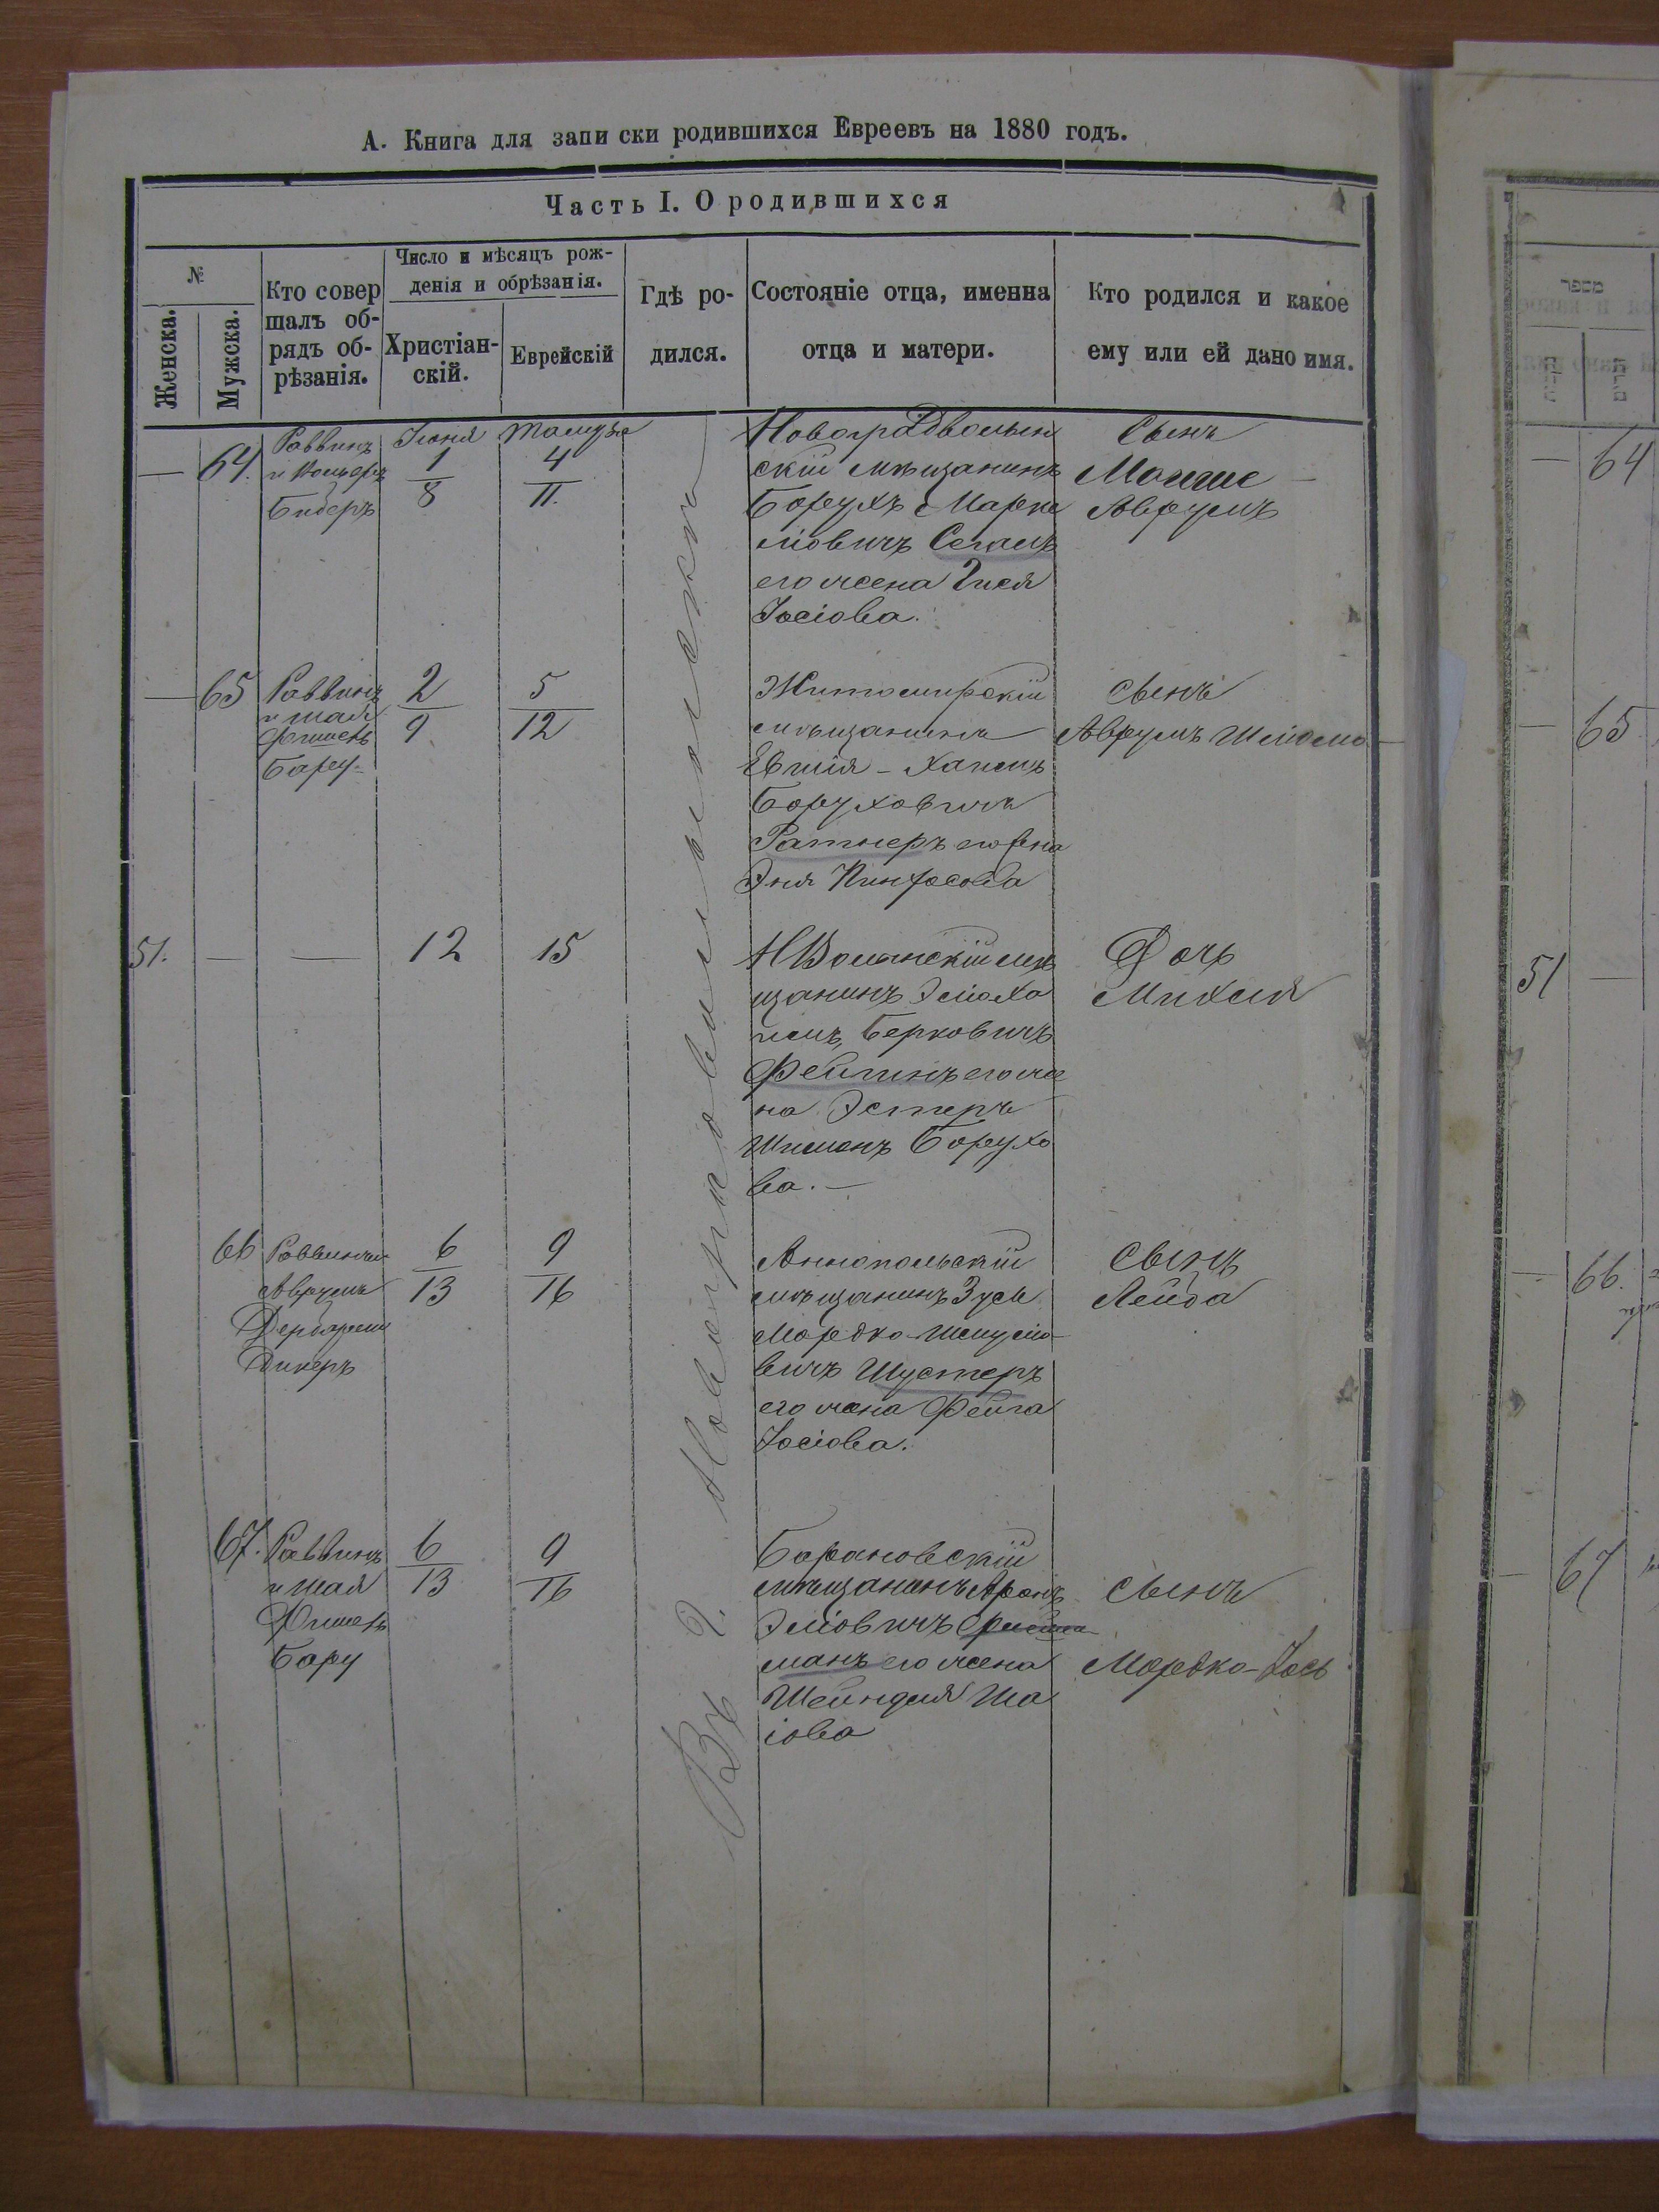 А. Книга для запи ски родившихся Евреевъ на 1880 годъ.
Часть I. О родившихся
№
Женска.
Мужска.
Кто совер
шалъ об-
рядъ об-
рѣзанія.
Число и мѣсяцъ рож-
денія и обрѣзанія.
Христіан-
скій.
Еврейскій
Гдѣ ро-
дился.
Состояніе отца, именна
отца и матери.
Кто родился и какое
ему или ей дано имя.
Въ г.
— 64.
Раввинъ
Бидеръ
Іюня
1
8
Тамуза
4
11.
Новоградволын
скій мѣщанинъ
Борухъ Марке
ліовичъ Сегалъ
его жена Гися
Іосіова.
Сынъ
Моише
Аврумъ
— 65
Раввинъ
и Шая
Фишель
Бару
2
9
5
12
Житомирскій
мѣщанинъ
Боруховичъ
Ратнеръ его жна
Эня Пинхасова
сынъ
Аврумъ Шліома
51. — —
12
15
НВолынскій мѣ
щанинъ Эліоха
имъ Берковичъ
Фейгинъ его же
на Эстеръ
Борухо
ва. —
Дочь
Михля
66
Аврумъ
Дикеръ
6
13
9
16
Аннопольскій
мѣщанинъ Зусь
Мордко Шмуліо
вичъ Шустеръ
его жена Фейга
Іосіова.
Сынъ
Лейба
67.
Раввинъ
и Шая
Фишель
Бару
6
13
9
16
Барановскій
мѣщанинъ Аронъ
Эліовичъ
манъ его жена
Шейндля Ша
іова
сынъ
Мордко-Іось
מספר
— 64
— 65
51 —
— 66.
— 67